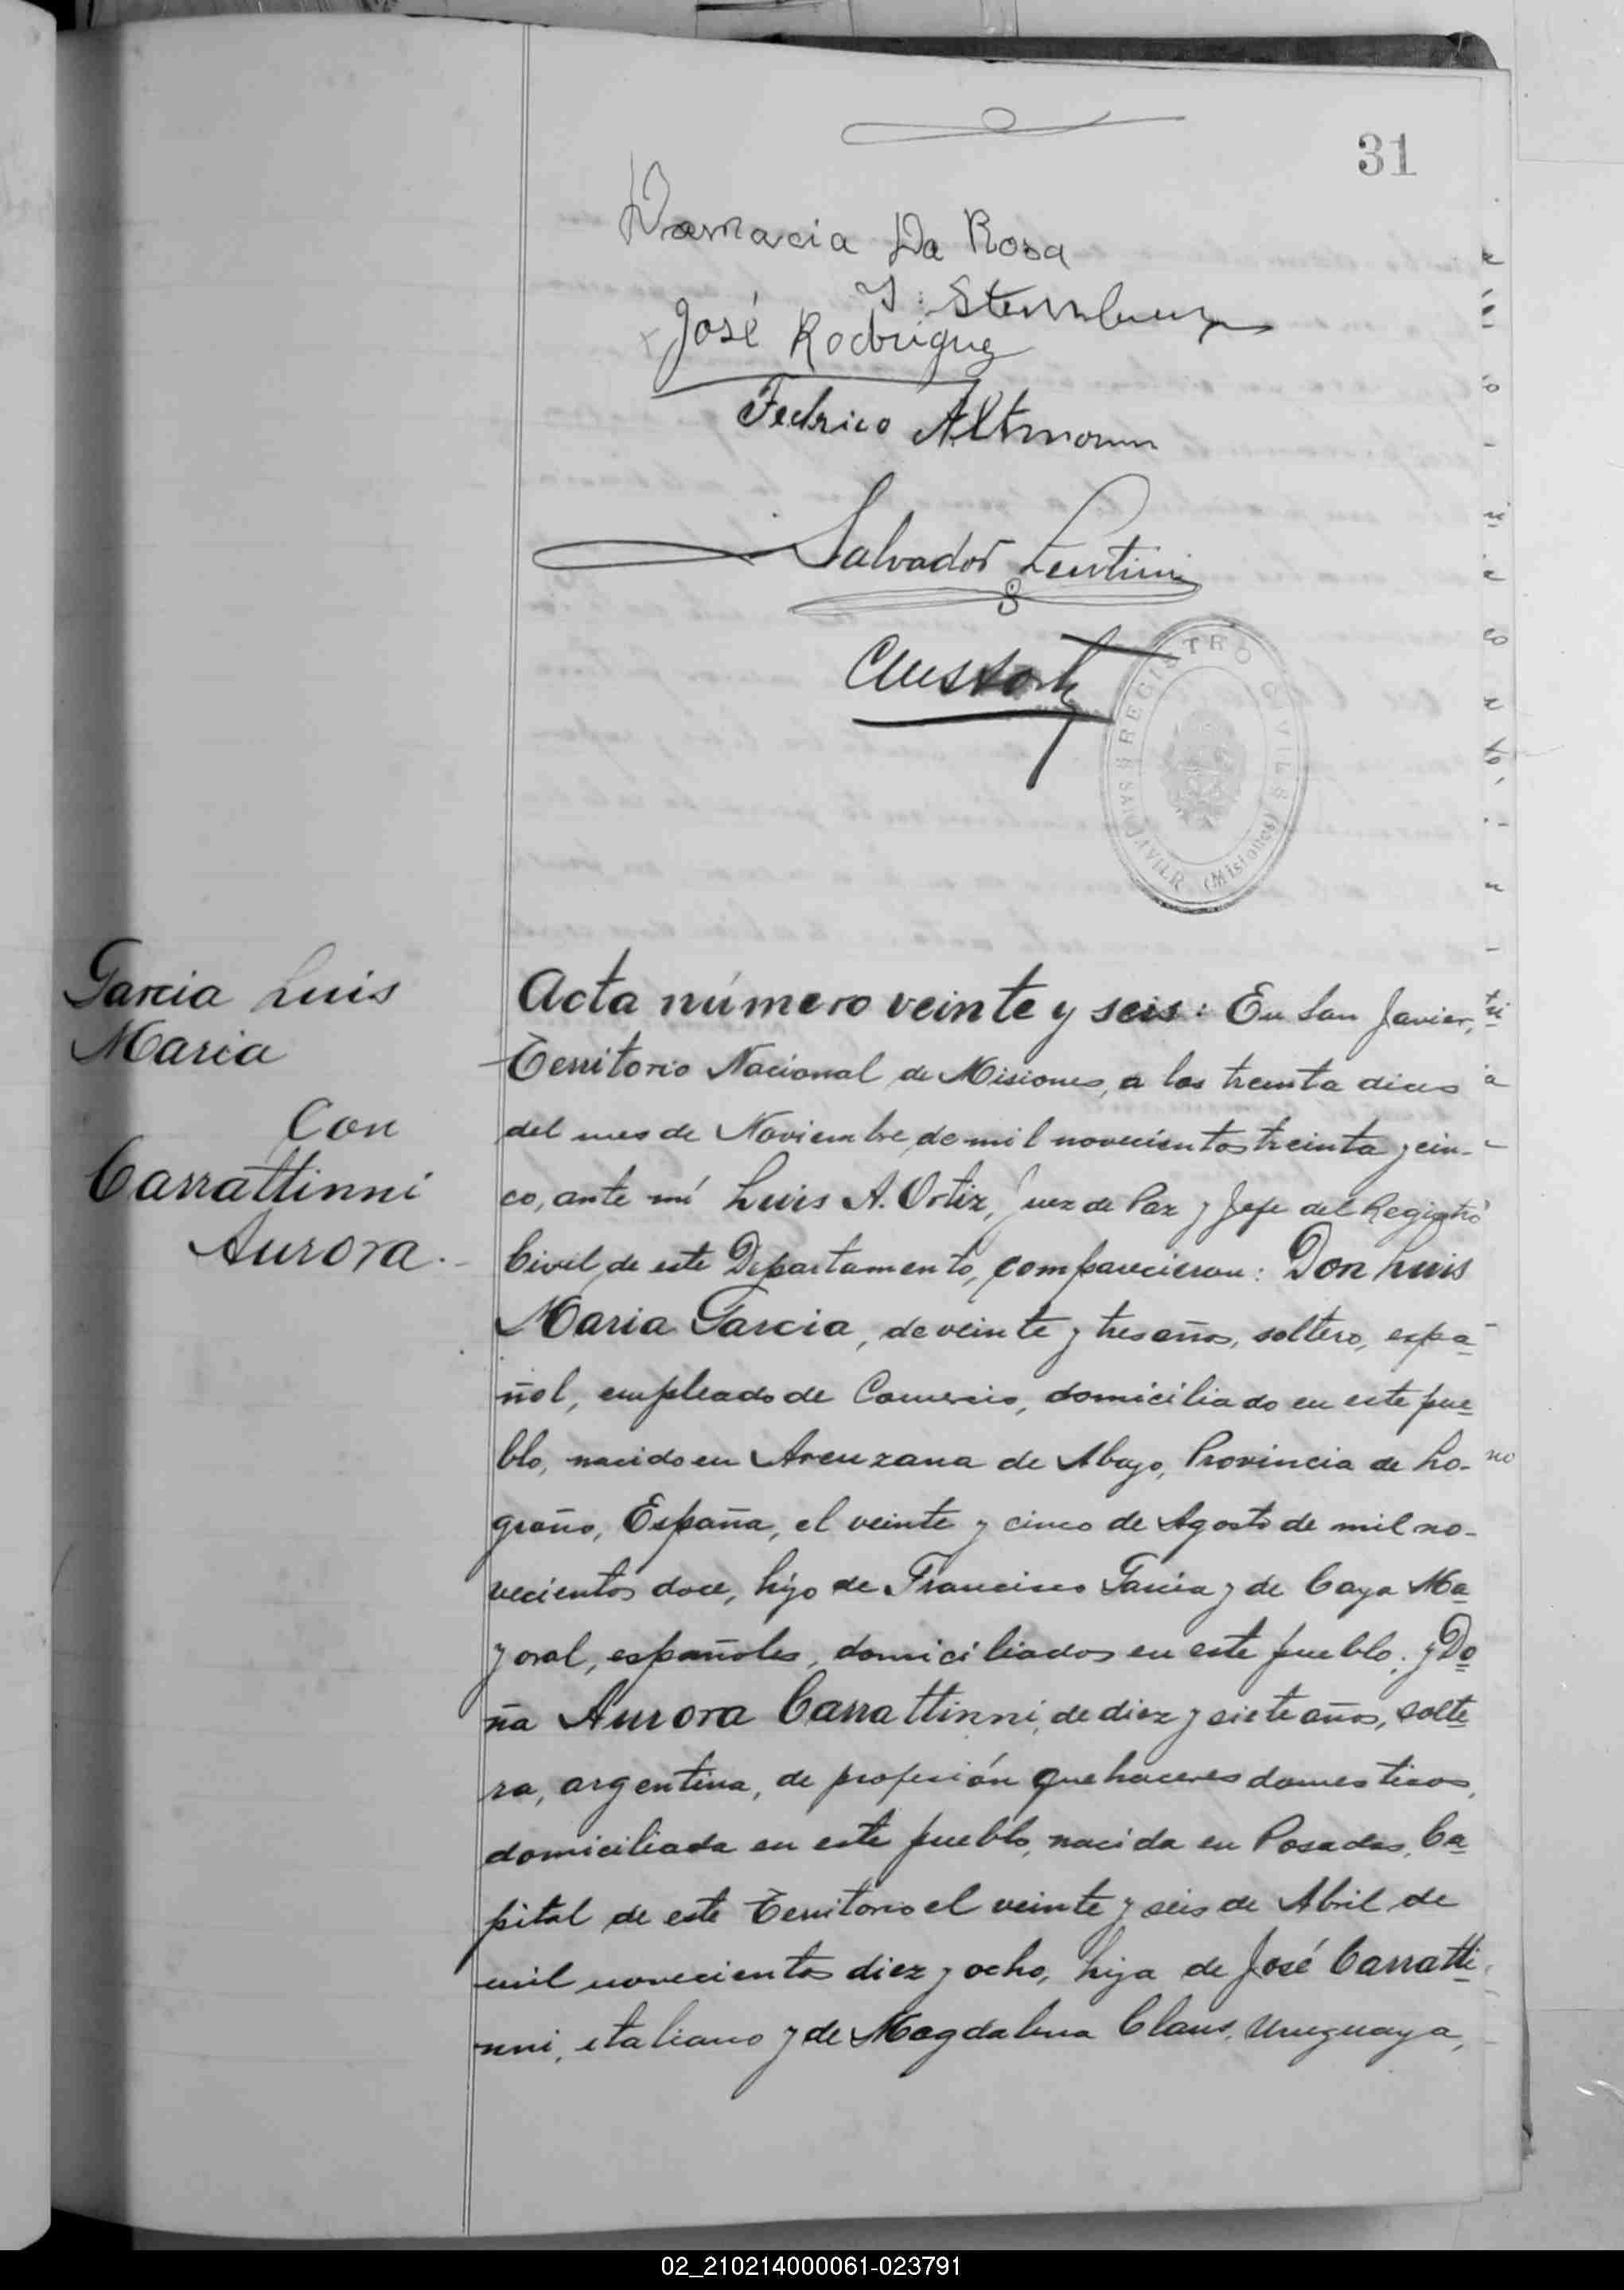 31
Damacia Da Rosa
José Rodriguez
Fedrico Altmann
Salvador Lentini
REGISTRO CIVIL
SAN JAVIER (Misiones)
Garcia Luis
Maria
Con
Carrattinni
Aurora.-
Acta número veinte y seis: En San Javier,
Territorio Nacional de Misiones, a los treinta dias
del mes de Noviembre de mil novecientos treinta y cin-
co, ante mí Luis A. Ortiz, Juez de Paz y Jefe del Registro
Civil de este Departamento, comparecieron: Don Luis
Maria Garcia, de veinte y tres años, soltero, espa-
ñol, empleado de Comercio, domiciliado en este pue-
blo, nacido en Arenzana de Abajo, Provincia de Lo-
groño, España, el veinte y cinco de Agosto de mil no-
vecientos doce, hijo de Francisco Garcia y de Caya Ma-
yoral, españoles, domiciliados en este pueblo; y Do-
ña Aurora Carrattinni, de diez y siete años, solte-
ra, argentina, de profesión quehaceres domesticos,
domiciliada en este pueblo, nacida en Posadas, Ca-
pital de este Territorio el veinte y seis de Abril de
mil novecientos diez y ocho, hija de José Carratti-
nni, italiano y de Magdalena Claus, Uruguaya,
02_210214000061-023791